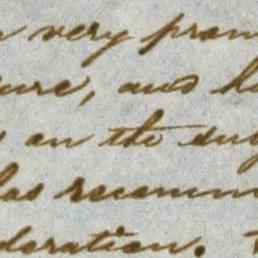 very prom
ure, and h
on the sug
has recomm
deration.